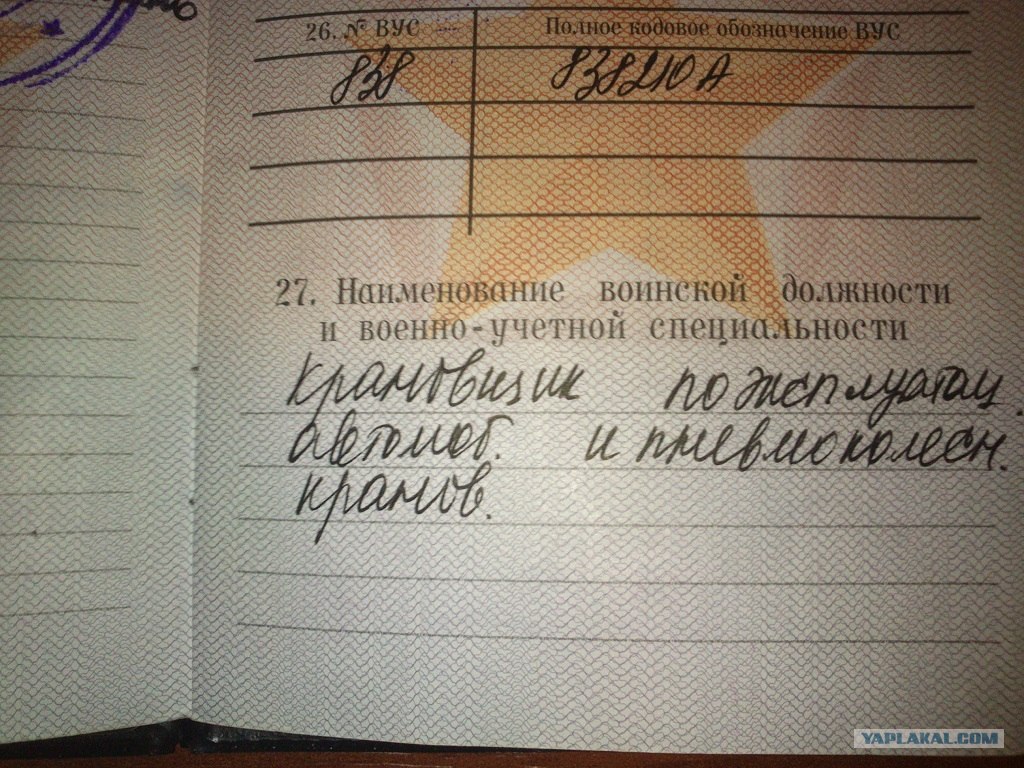 26. № ВУС
Полное кодовое обозначение ВУС
838
838210 А
27. Наименование воинской должности
и военно-учетной специальности
Крановщик по эксплуатац.
автомоб. и пневмоколесн.
кранов.
YAPLAKAL.COM